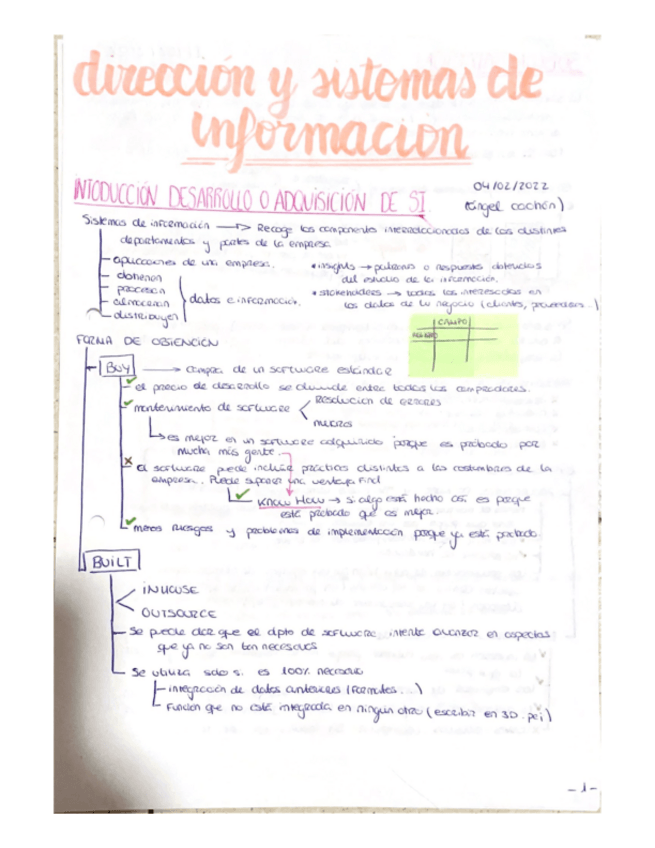 dirección y sistemas de
información
INTODUCCIÓN DESARROLLO O ADQUISICIÓN DE SI
04/02/2022
(Ángel cachón)
Sistemas de información → Recoge los componentes interrelacionados de los distintos
departamentos y partes de la empresa
aplicaciones de una empresa.
obtienen
procesan
almacenan
distribuyen
datos e información.
*insights → patrones o respuestas obtenidas
del estudio de la información.
*stakeholders → todos los interesados en
los datos de tu negocio (clientes, proveedores...)
CAMPO
REGISTRO
FORMA DE OBTENCIÓN
BUY → compra de un software estándar
✓ el precio de desarrollo se divide entre todos los compradores.
✓ mantenimiento de software
Resolución de errores
es mejor en un software adquirido porque es probado por
mucha más gente.
x el software puede incluir prácticas distintas a las costumbres de la
empresa. Puede suponer una ventaja
✓ KNOW HOW → si algo está hecho así es porque
está probado que es mejor.
✓ menos riesgos y problemas de implementación porque ya está probado.
BUILT
INHOUSE
OUTSOURCE
Se puede dar que el dpto de software intente avanzar en aspectos
que ya no son tan necesarios
Se utiliza solo si es 100% necesario
integración de datos anteriores (formatos...)
Función que no está integrada en ningún otro (escribir en 3D. pej)
-1-